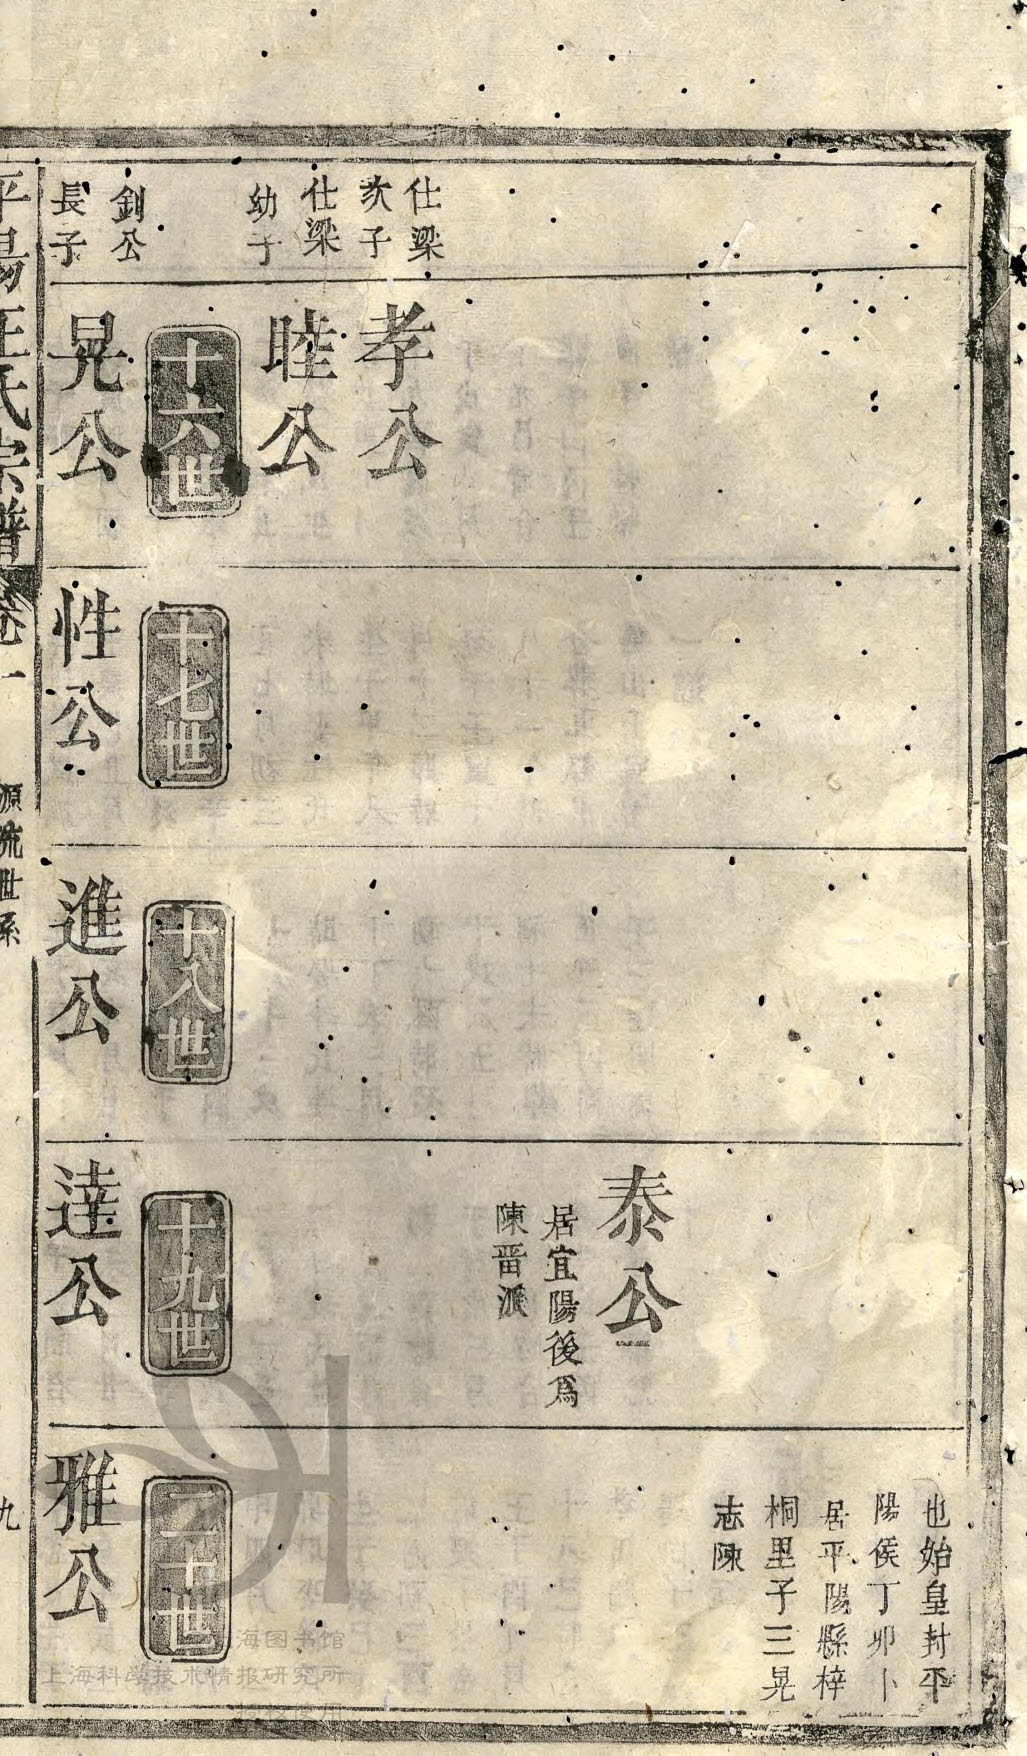 仕梁
次子
孝公
仕梁
幼子
睦公
十六世
釗公
長子
晃公
十七世
性公
十八世
進公
泰公
居宜陽後爲
陳晋派
十九世
達公
也始皇封平
陽侯丁卯卜
居平陽縣梓
桐里子三晃
志陳
二十世
雅公
平陽汪氏宗譜
卷一
源流世系
九
海图书馆
上海科学技术情报研究所